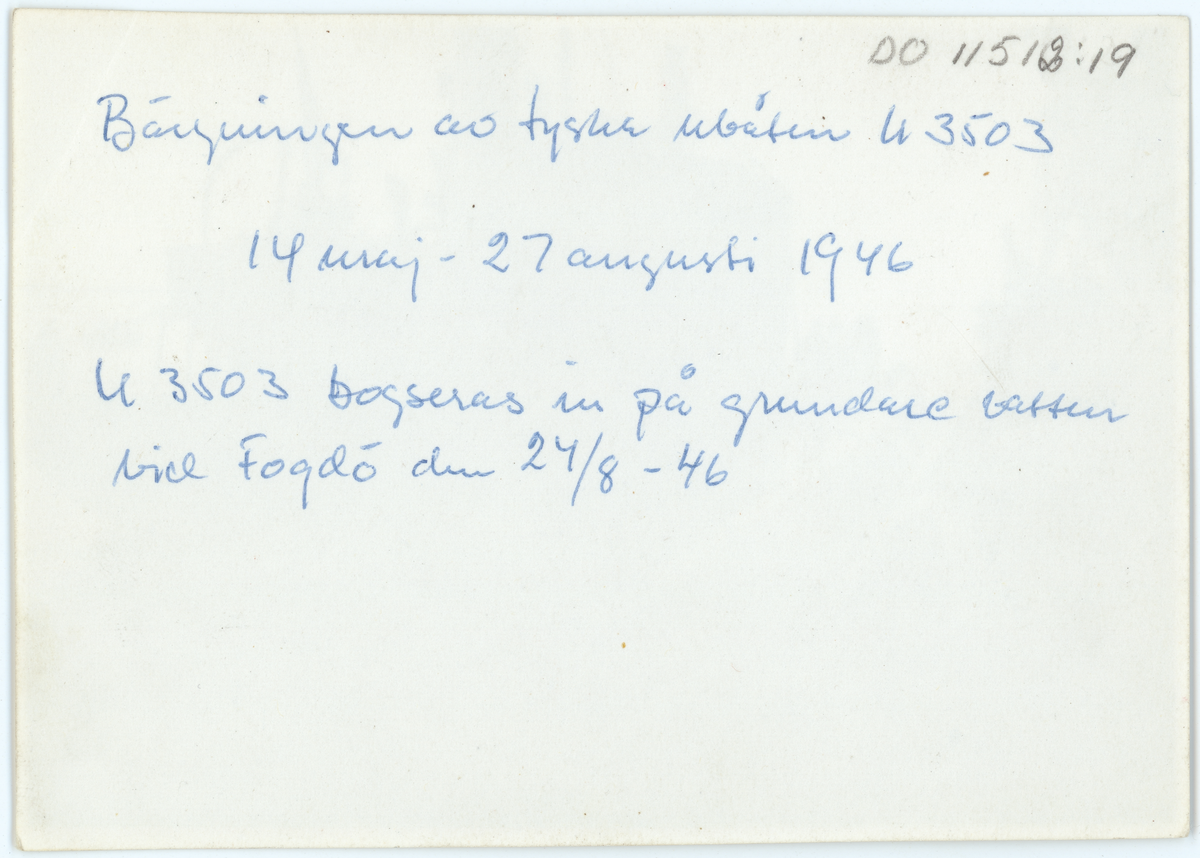 DO 11512:19
Bärgningen av tyska ubåten U 3503
14 maj - 27 augusti 1946
U 3503 bogseras in på grundare vatten
vid Fogdö den 24/8 - 46